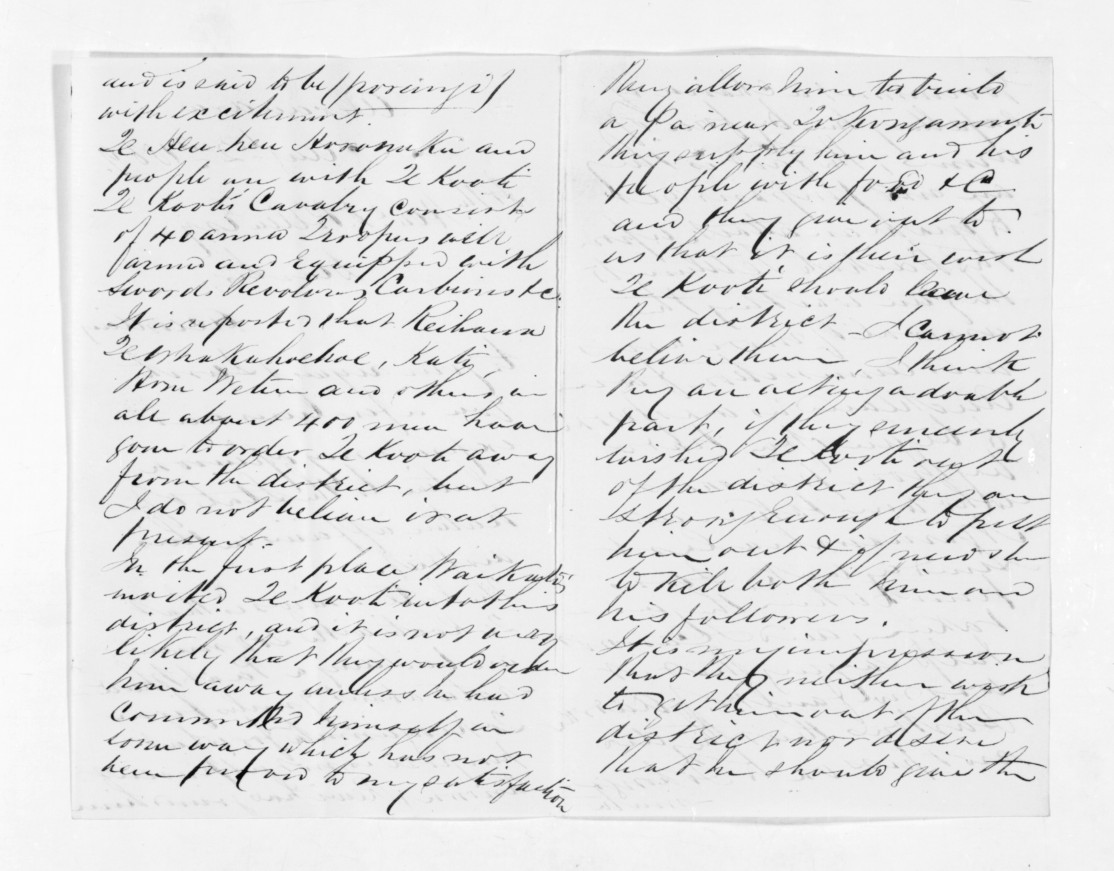 and is said to be (porangi)
with excitement.
Te Heu heu Horonuku and
people are with Te Kooti
Te Kooti's Cavalry consists
of 40 Troopers well
armed and Equipped with
Swords Revolvers Carbines &c.
It is reported that Reihana
Te Whakahoehoe,
Hone Wetere and others in
all about 400 men have
gone to order Te Kooti away
from the district, but
I do not believe it at
present.
In the first place Waikatos
invited Te Kooti into this
district, and it is not very
likely that they would order
him away unless he had
committed himself in
some way which has not
been proved to my satisfaction
They allow him to build
a Pa near Tokangamutu
they supply him and his
people with food & C
and they give out to
us that it is their wish
Te Kooti should leave
the district _ I cannot
believe them, I think
they are acting a double
part, if they sincerely
wished Te Kooti out
of the district they are
strong Enough to put
him out & if needs be
to kill both him and
his followers.
It is my impression
that they neither wish
to get him out of the
district, nor desire
that he should give the